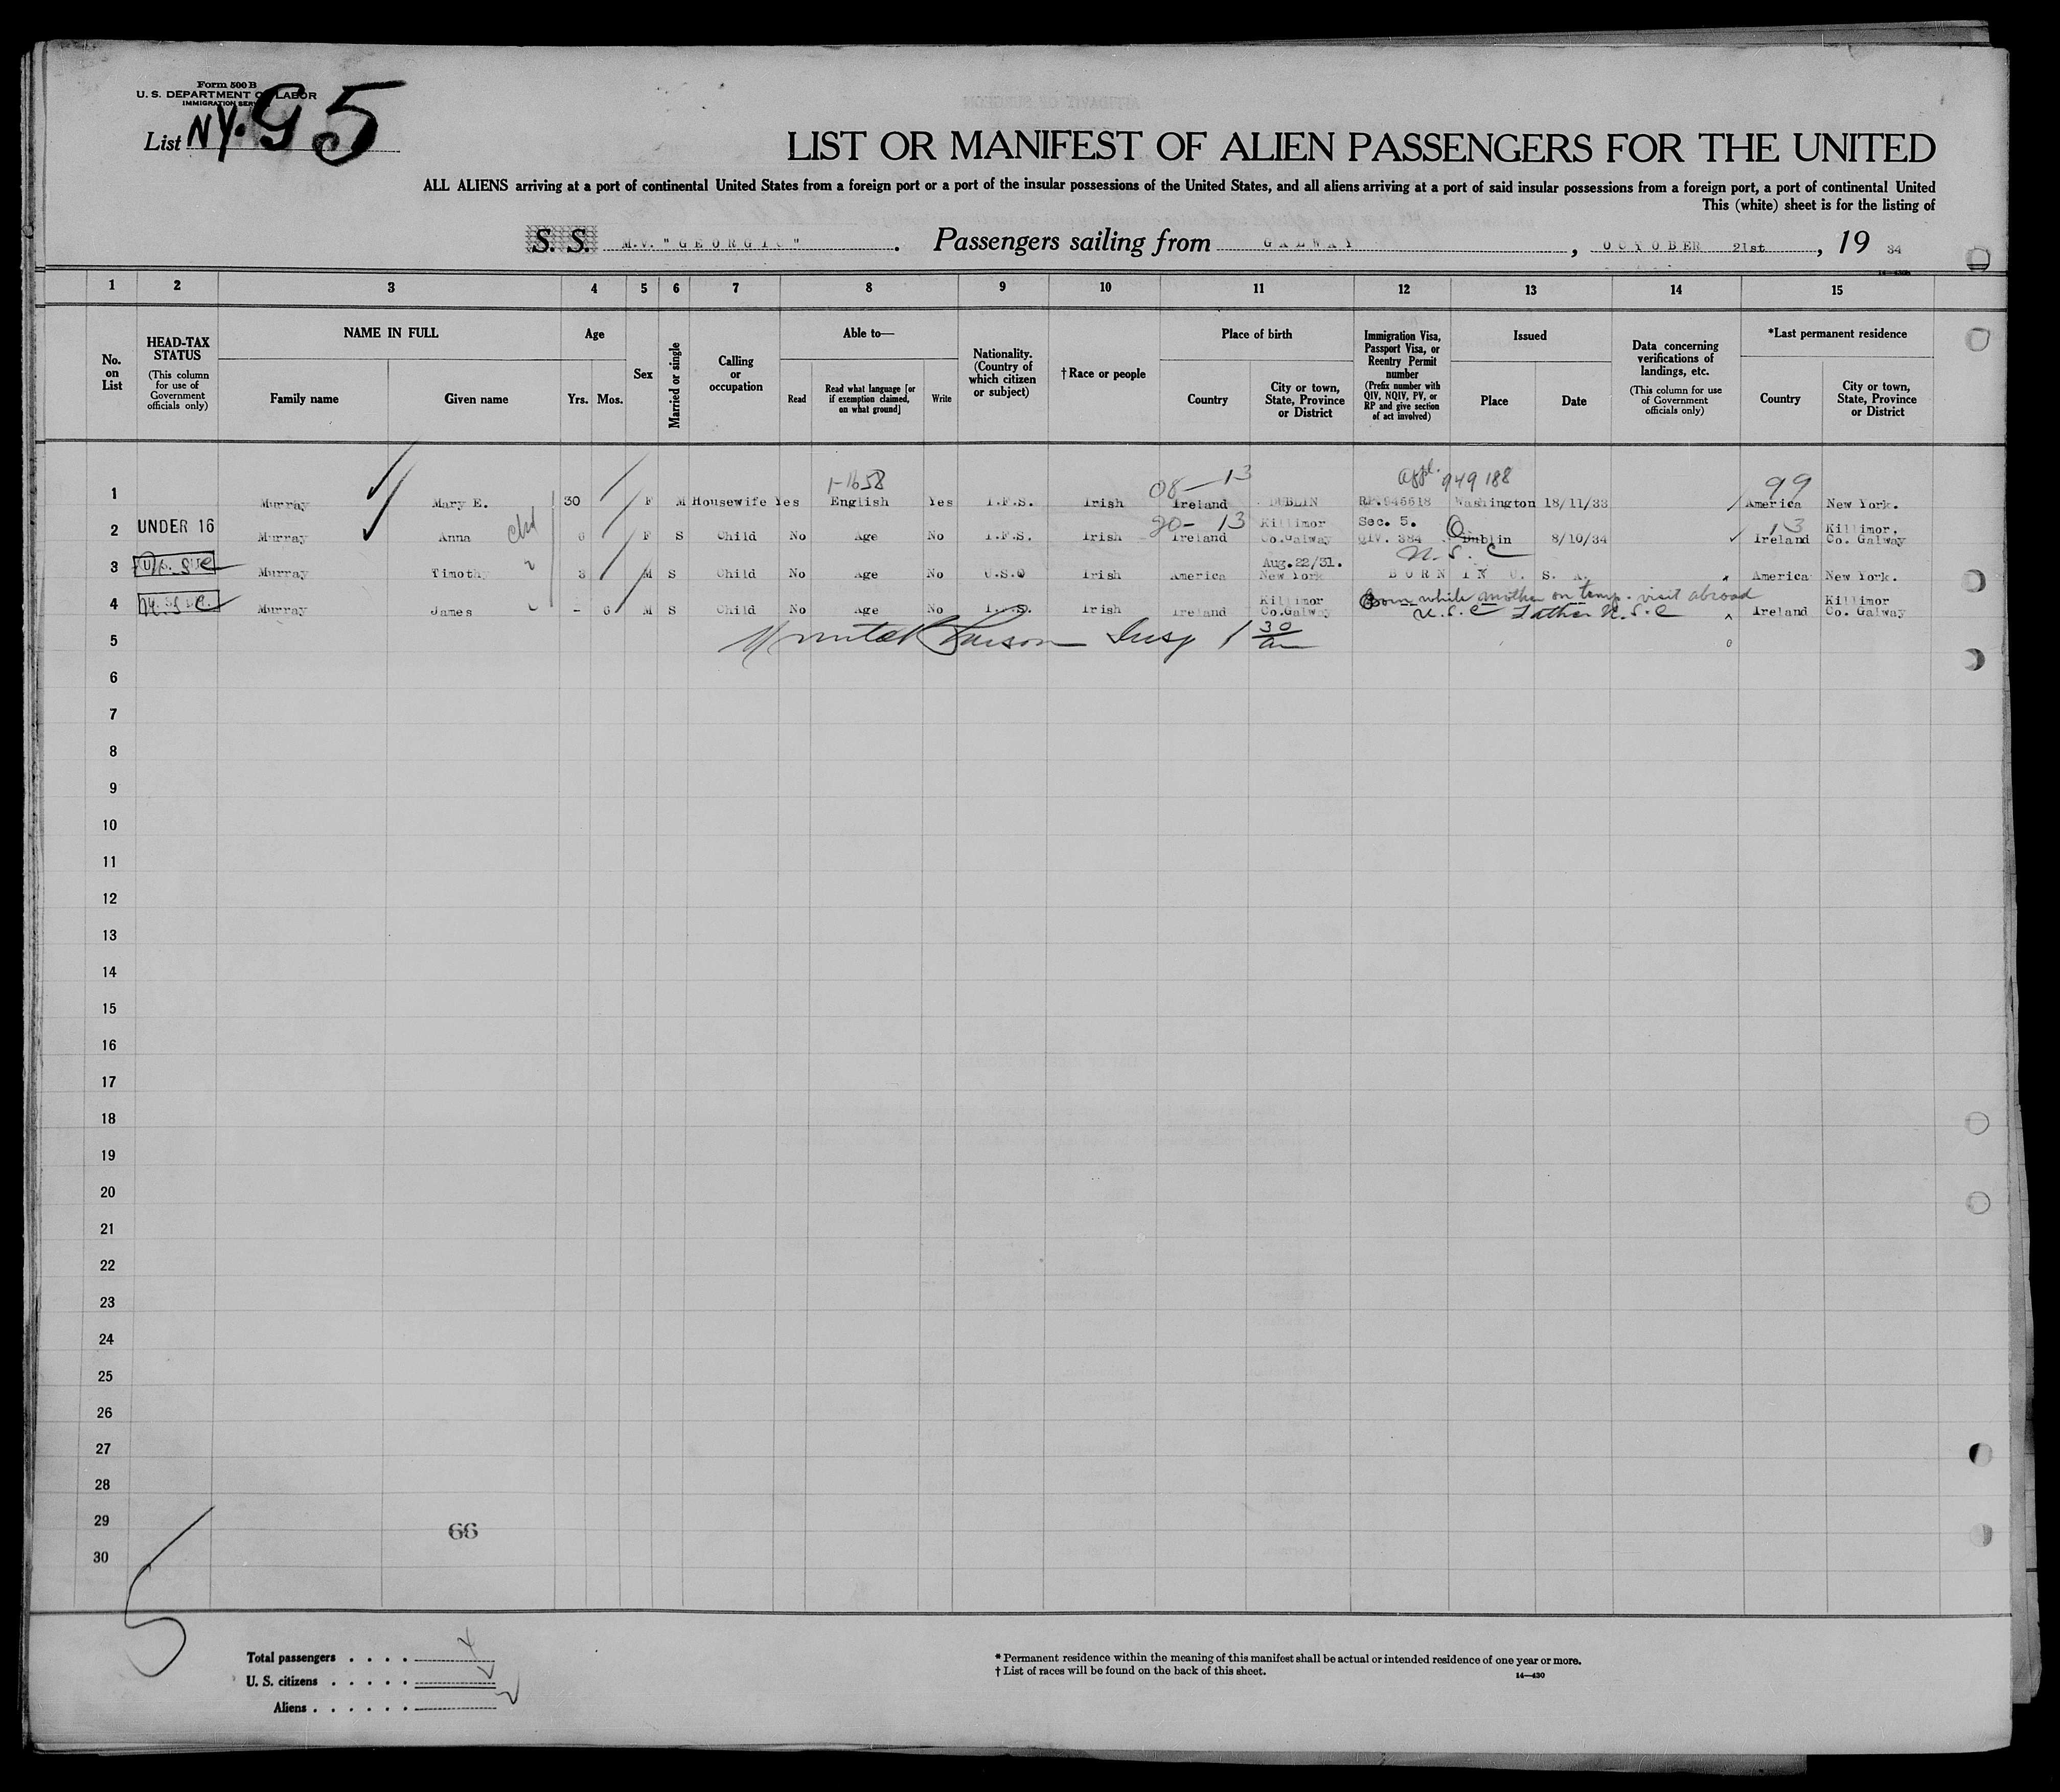 Form 500 B
U. S. DEPARTMENT OF LABOR
IMMIGRATION SERVICE
List NY. 95
LIST OR MANIFEST OF ALIEN PASSENGERS FOR THE UNITED
ALL ALIENS arriving at a port of continental United States from a foreign port or a port of the insular possessions of the United States, and all aliens arriving at a port of said insular possessions from a foreign port, a port of continental United
This (white) sheet is for the listing of
S. S. M.V. "GEORGIC". Passengers sailing from GALWAY, OCTOBER 21st, 19 34
1 2 3 4 5 6 7 8 9 10 11 12 13 14 15
No. on List
HEAD-TAX STATUS
(This column for use of Government officials only)
NAME IN FULL
Family name Given name
Age
Yrs. Mos.
Sex
Married or single
Calling or occupation
Able to—
Read
Read what language [or if exemption claimed, on what ground]
Write
Nationality. (Country of which citizen or subject)
†Race or people
Place of birth
Country
City or town, State, Province or District
Immigration Visa, Passport Visa, or Reentry Permit number
(Prefix number with QIV, NQIV, PV, or RP and give section of act involved)
Issued
Place Date
Data concerning verifications of landings, etc.
(This column for use of Government officials only)
*Last permanent residence
Country
City or town, State, Province or District
1-1658 08-13 appl. 949188 99
1 Murray Mary E. 30 F M Housewife Yes English Yes I.F.S. Irish Ireland DUBLIN RP.946618 Washington 18/11/33 America New York.
UNDER 16 20-13 Killimor Sec. 5. 13 Killimor,
2 Murray Anna 6 F S Child No Age No I.F.S. Irish Ireland Co.Galway QIV. 384 Dublin 8/10/34 Ireland Co. Galway
U.S.C. Aug.22/31. U.S.C
3 Murray Timothy 3 M S Child No Age No U.S.O Irish America New York BORN IN U. S. A. America New York.
U.S.C. Killimor Born while mother on temp. visit abroad Killimor
4 Murray James - 6 M S Child No Age No I.F.S. Irish Ireland Co.Galway U.S.C Father U.S.C Ireland Co. Galway
5 Insp 1 30
6
7
8
9
10
11
12
13
14
15
16
17
18
19
20
21
22
23
24
25
26
27
28
29
66
30
Total passengers . . . .
U. S. citizens . . . . .
Aliens . . . . . .
* Permanent residence within the meaning of this manifest shall be actual or intended residence of one year or more.
† List of races will be found on the back of this sheet.
14—430